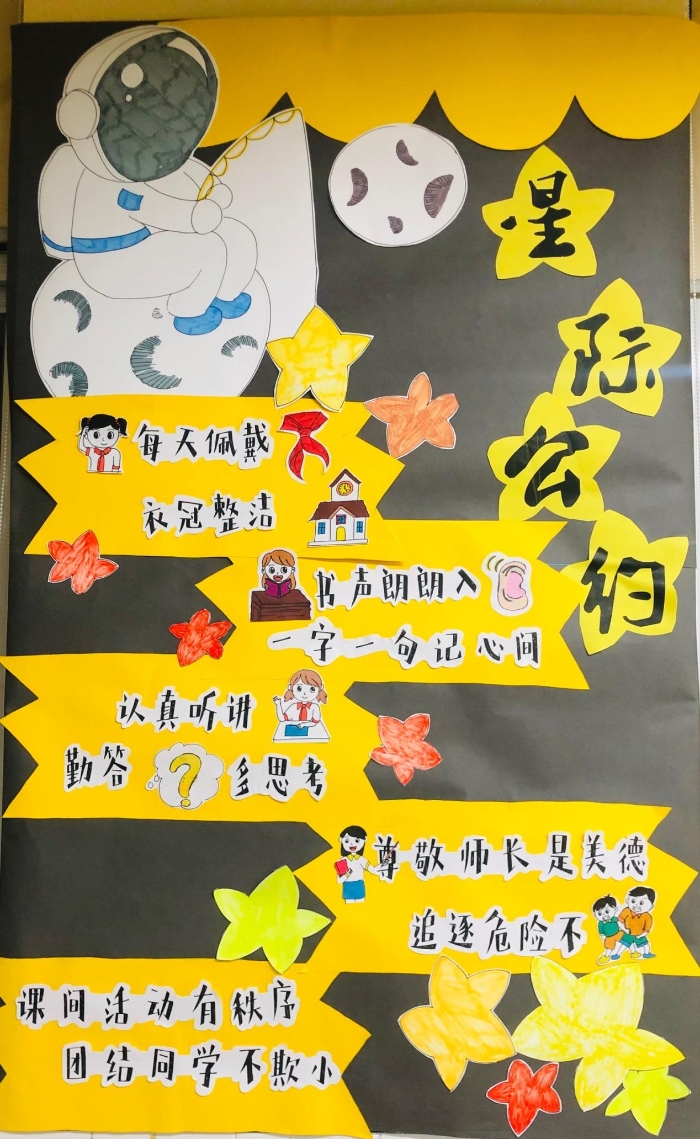 星际公约
每天佩戴
衣冠整洁
书声朗朗入
一字一句记心间
认真听讲
勤答?多思考
尊敬师长是美德
追逐危险不
课间活动有秩序
团结同学不欺小